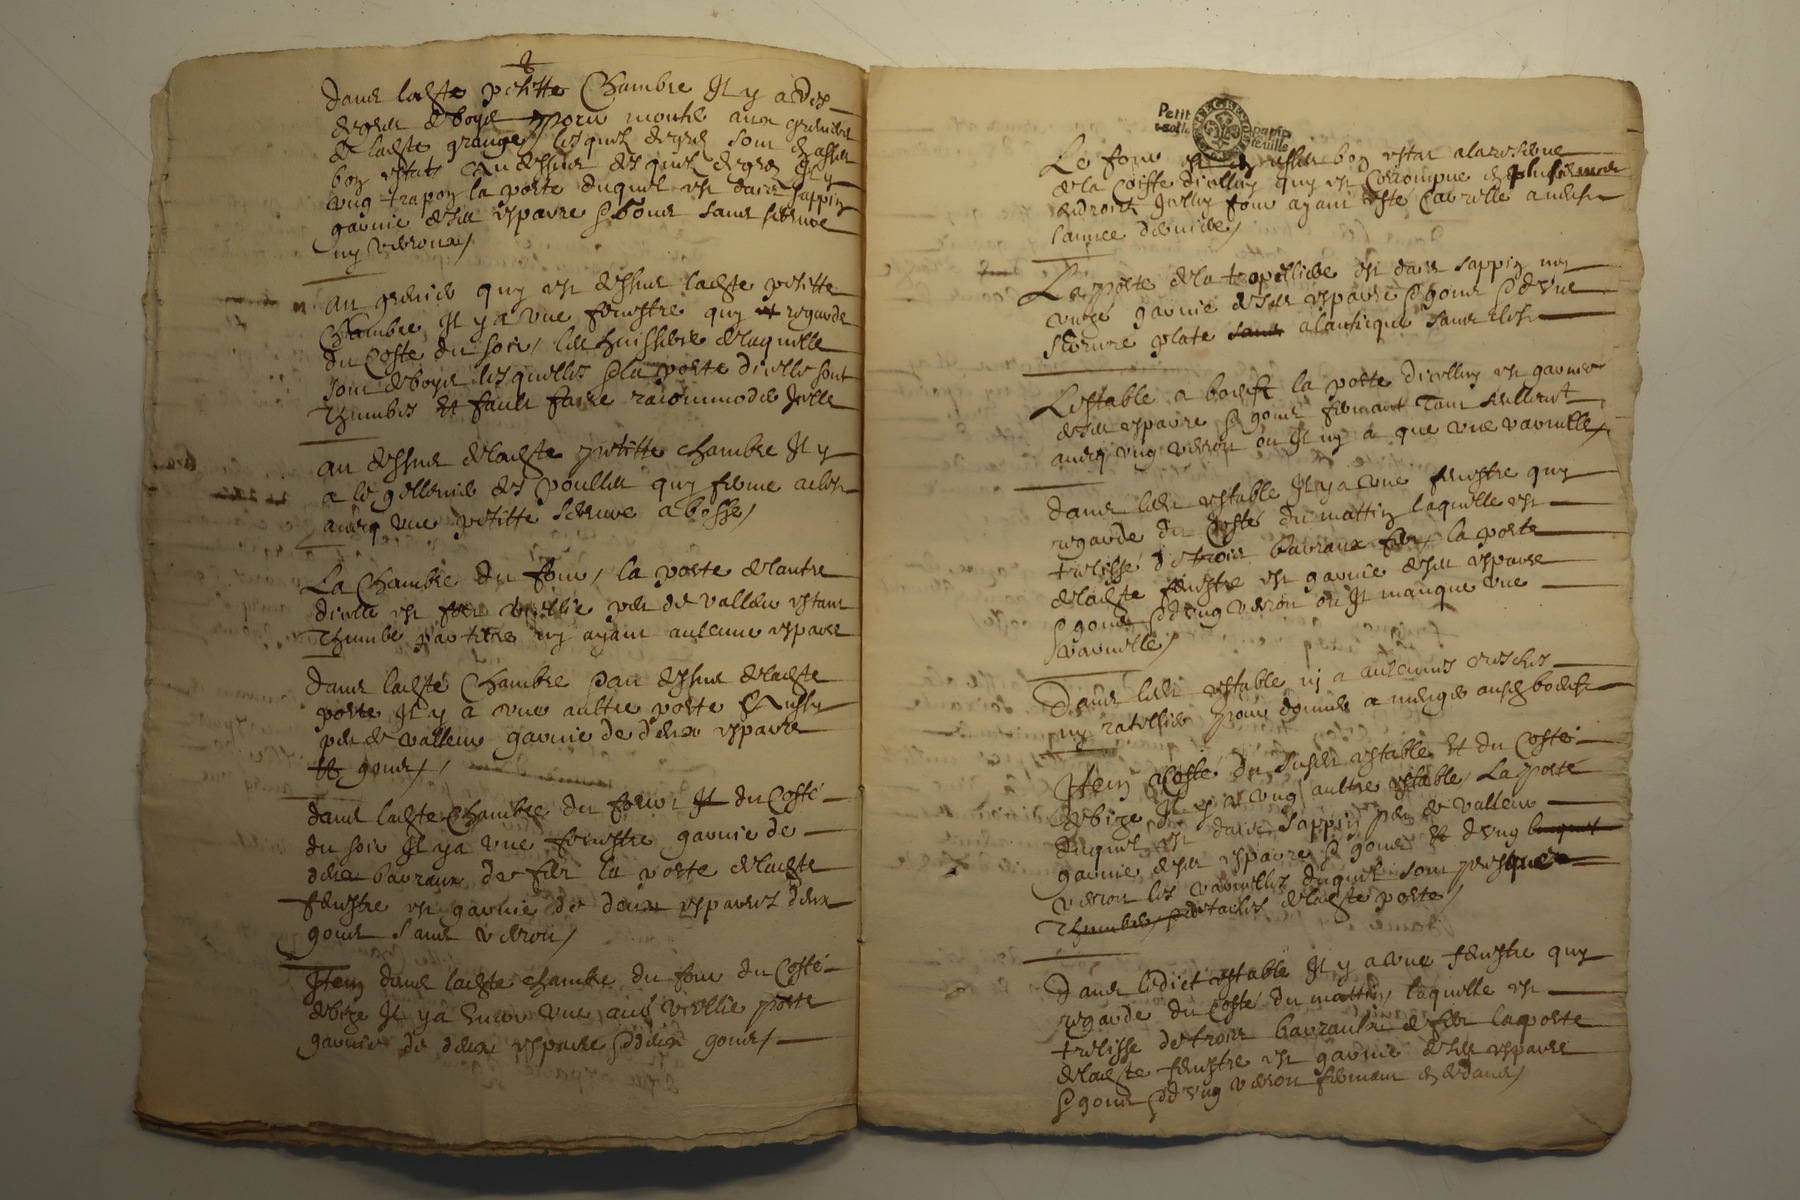 2
Dans lad^te petitte Chambre Il y a des
degrez de boys pour monter aux greniers
de lad^te grange / lesquelz degrez sont en assez
bon estats Au dessus desquelz degrez Il y
ung trapon la porte duquel est daix sappin
garnie de ses espares & gonds sans serrure
ny verroux /
au grenier quy est dessus lad^te petitte
Chambre Il y a une fenestre quy regarde
du Costé du soir / les huisseries de laquelle
sont de boys lesquelles & la porte dicelle sont
et fault faire racommoder Icelle
au dessus de lad^te petitte chambre Il y
a le gellenier des poulles quy ferme a clef
avecq une petitte serrure a bosse /
La Chambre du four / la porte de lantre
dicelle est vieillie peu de valleur estant
ny ayant aulcune espares
Dans lad^te Chambre & au dessus de lad^te
porte Il y a une aultre porte Aussy
peu de valleur garnie de deux espares
& gonds //
dans lad^te Chambre du four Et du Costé
du soir Il y a une fenestre garnie de
deux barraux de fer la porte de lad^te
fenestre est garnie de deux espares deux
gonds sans verroux /
Item dans lad^te chambre du four du Costé
de bize Il y a une vieillie porte
garnie de deux espares & deux gonds /
Petit papier
feuille
Le four est en assez bon estat a la reserve
de la Coiffe dicelluy quy est Corrompue en plusieurs
endroict Icelluy four ayant esté
lannee derniere /
La porte de la est daix sappin
garnie de ses espares & gonds & dune
serrure plate a lanticque sans clef
Lestable a boeufz la porte dicelluy est garnie
de ses espares & gonds fermant tant seullement
avecq ung verroux ou Il ny a que une varvelle /
Dans led^t estable Il y a une fenestre quy
regarde du Costé du mattin laquelle est
trelissé de trois barraux fer / la porte
de lad^te fenestre est garnie de ses espares
& gonds & dung verroux ou Il manque une
varvelle /
Dans led^t estable ny a aulcunes cresches
ny ratellier pour donner a menger aus^d boeufz
Item Costé du susd^t estable Et du Costé
de bize Il y a ung aultre estable / La porte
duquel est daix sappin peu de valleur
garnie de ses espares & gonds Et dung
verroux les varvelles duquel sont presque
de lad^te porte /
Dans ledict estable Il y a une fenestre quy
regarde du Costé du mattin, laquelle est
trelissé de trois barraulx de fer la porte
de lad^te fenestre est garnie de ses espares
& gonds & dung verroux fermant en dedans /